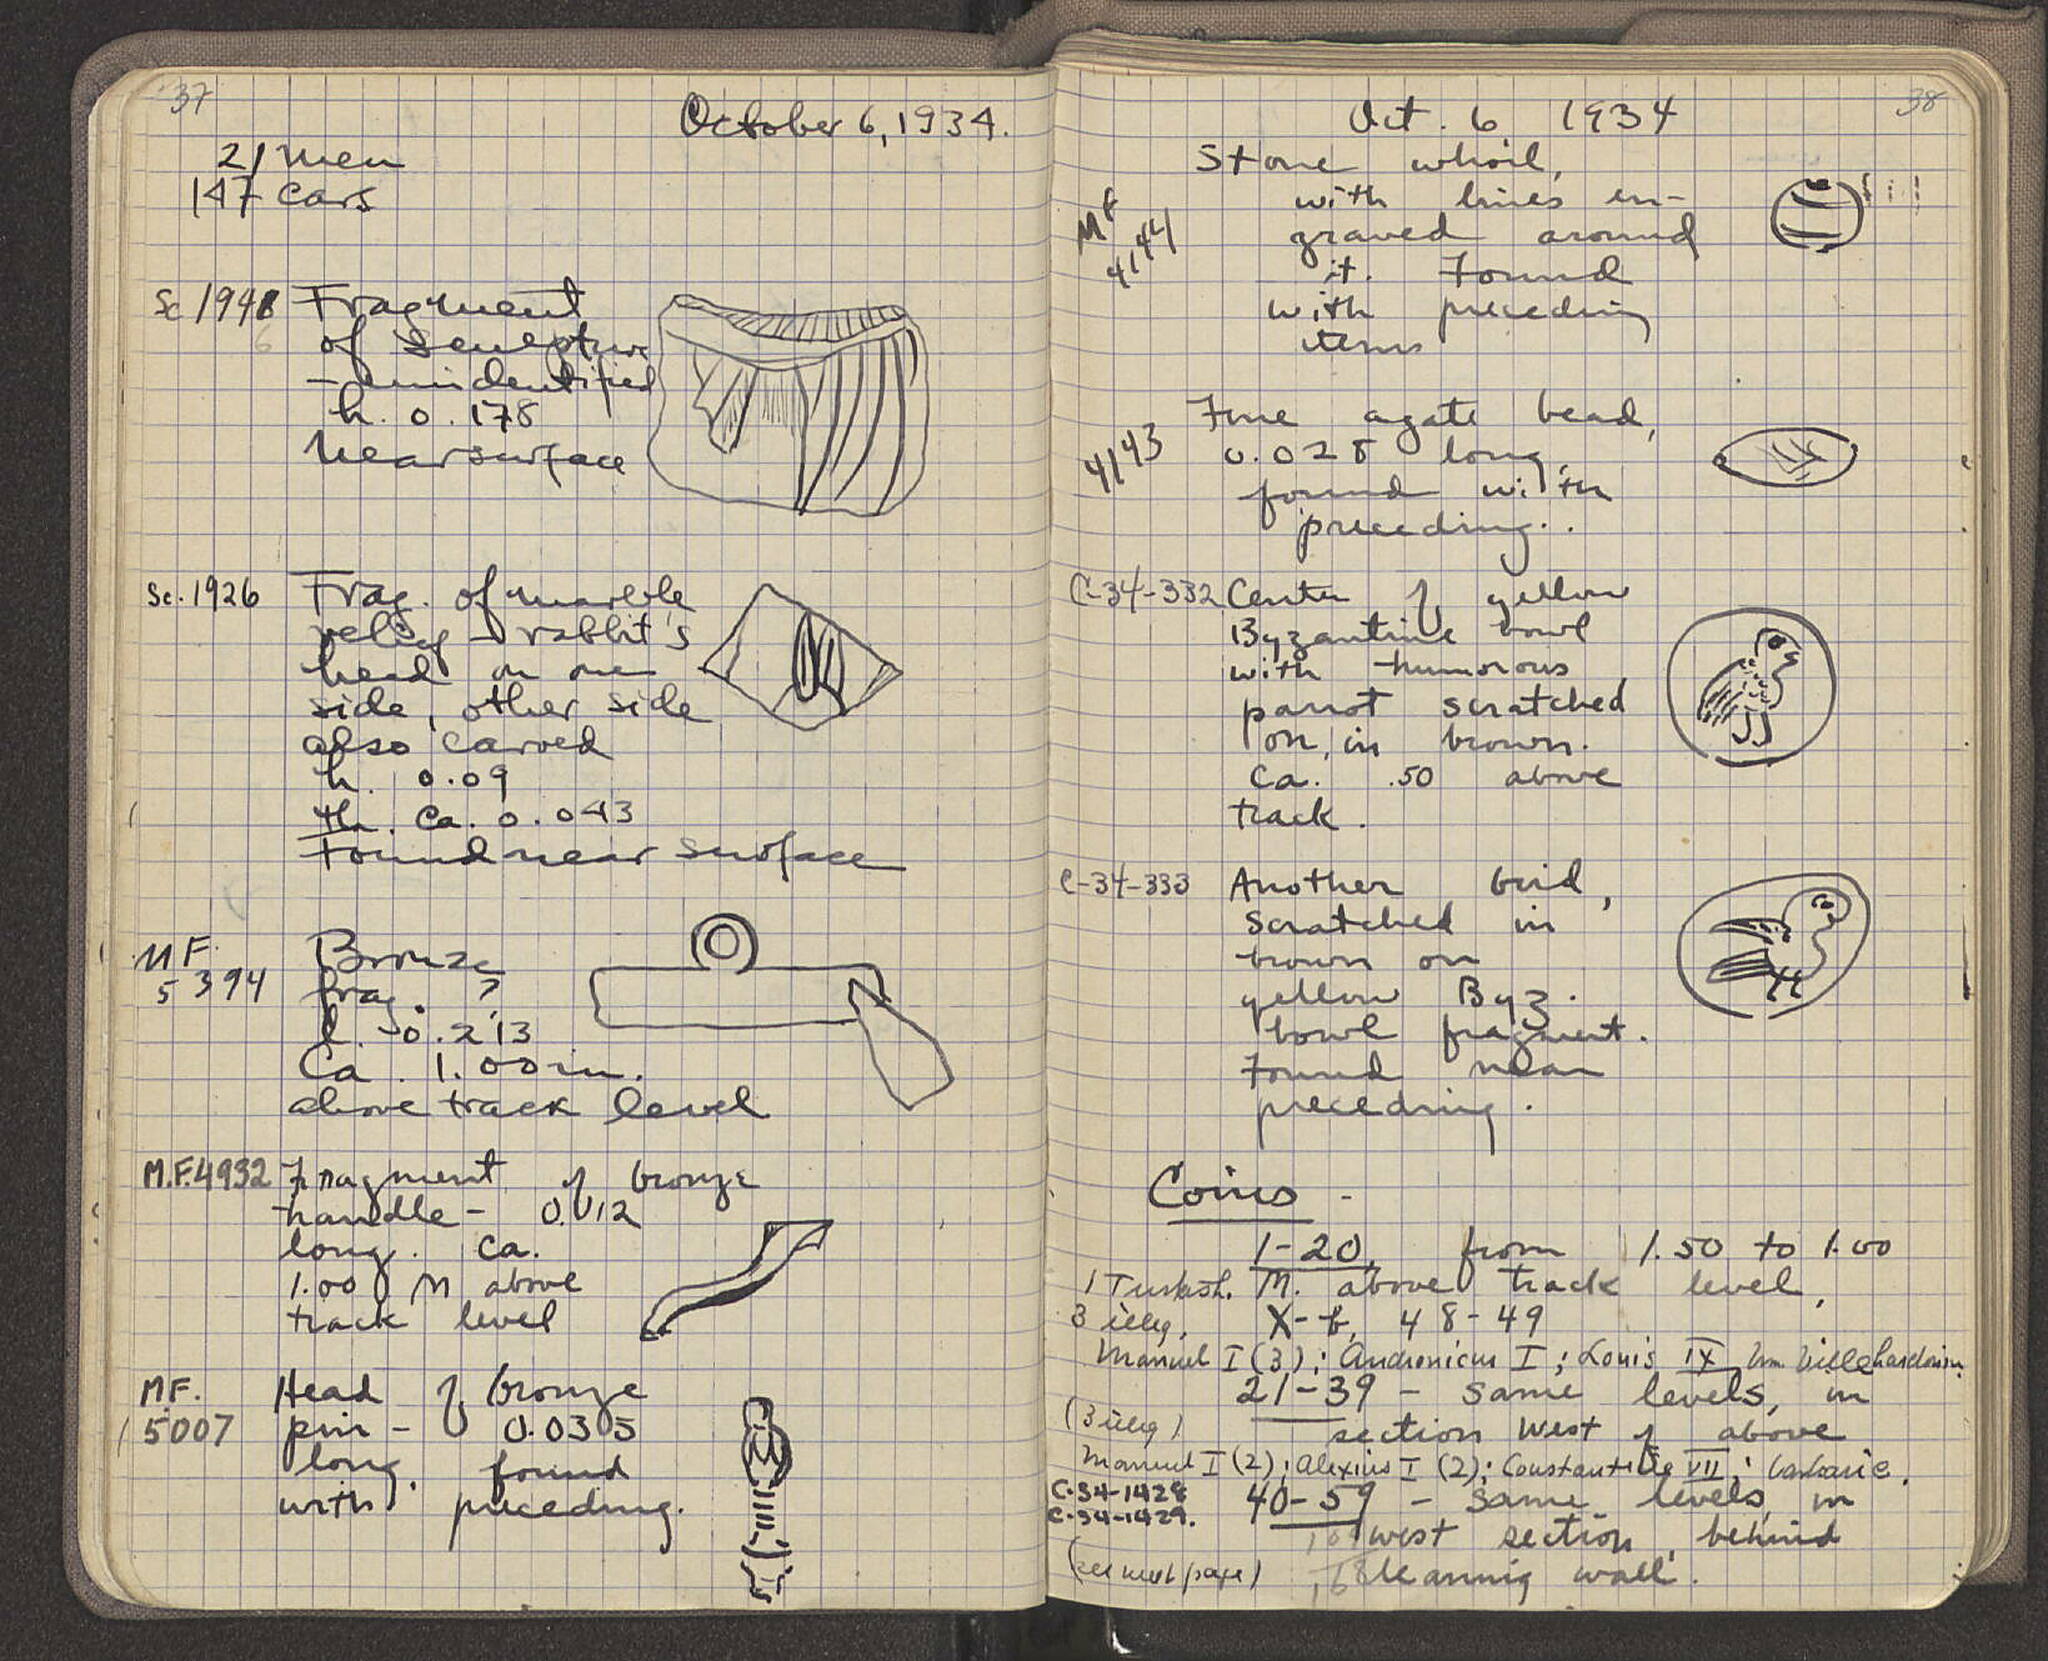 37
October 6, 1934.
21 men
147 cars
Sc 1941 Fragment
6
of sculpture
- unidentified
h. 0.178
Near surface
Sc. 1926 Frag. of marble
relief - rabbit's
head on one
side, other side
also carved
h. 0.09
th. ca. 0.043
Found near surface
M F. Bronze
5394 frag. ?
l. - 0.213
Ca. 1.00 m.
above track level
M.F. 4932 Fragment of bronze
handle - 0.012
long. ca.
1.00 M above
track level
MF. Head of bronze
5007 pin - 0.035
long. found
with preceding.
38
Oct. 6 1934
Stone whorl,
with lines en-
MF graved around
4144 it. Found
with preceding
items
Fine agate bead,
4143 0.028 long,
found with
preceding.
C-34-332 Center of yellow
Byzantine bowl
with humorous
parrot scratched
on, in brown.
Ca. .50 above
track.
C-34-333 Another bird,
scratched in
brown on
yellow Byz.
bowl fragment.
Found near
preceding.
Coins -
1-20, from 1.50 to 1.00
1 Turkish. M. above track level,
3 illeg. X-b, 48-49
Manuel I (3); Andronicus I; Louis IX Wm Villehardouin.
21-39 - same levels, in
(3 illeg) section West of above
Manuel I (2); Alexius I (2); Constantine VII; barbaric.
C-34-1428 40-59 - same levels, in
C-34-1429. west section, behind
(see next page) leaning wall.